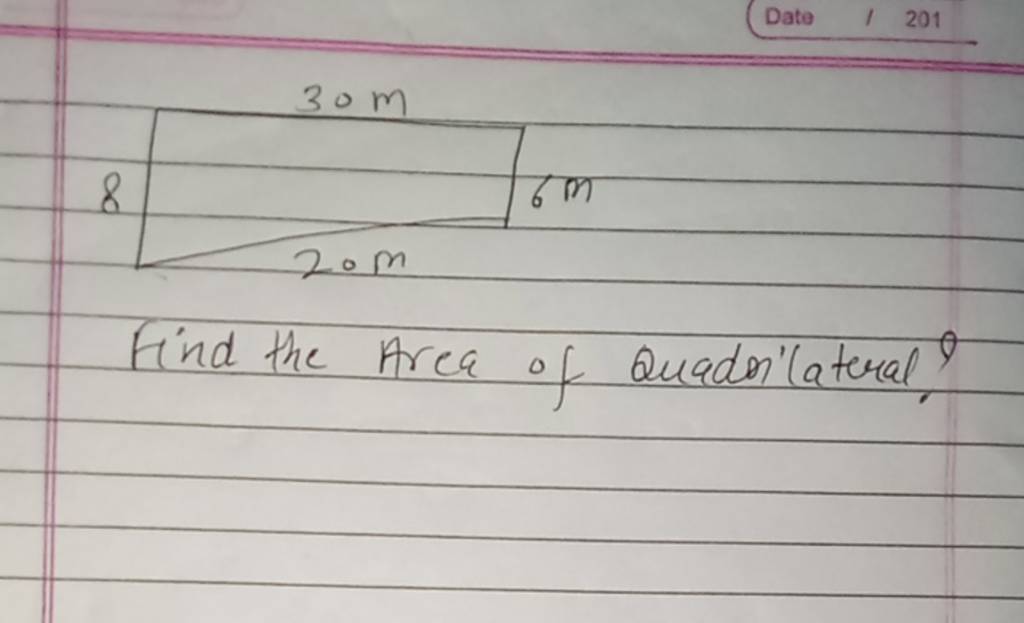 Date / 201
30 m
8
6 m
20 m
Find the Area of Quadrilateral?